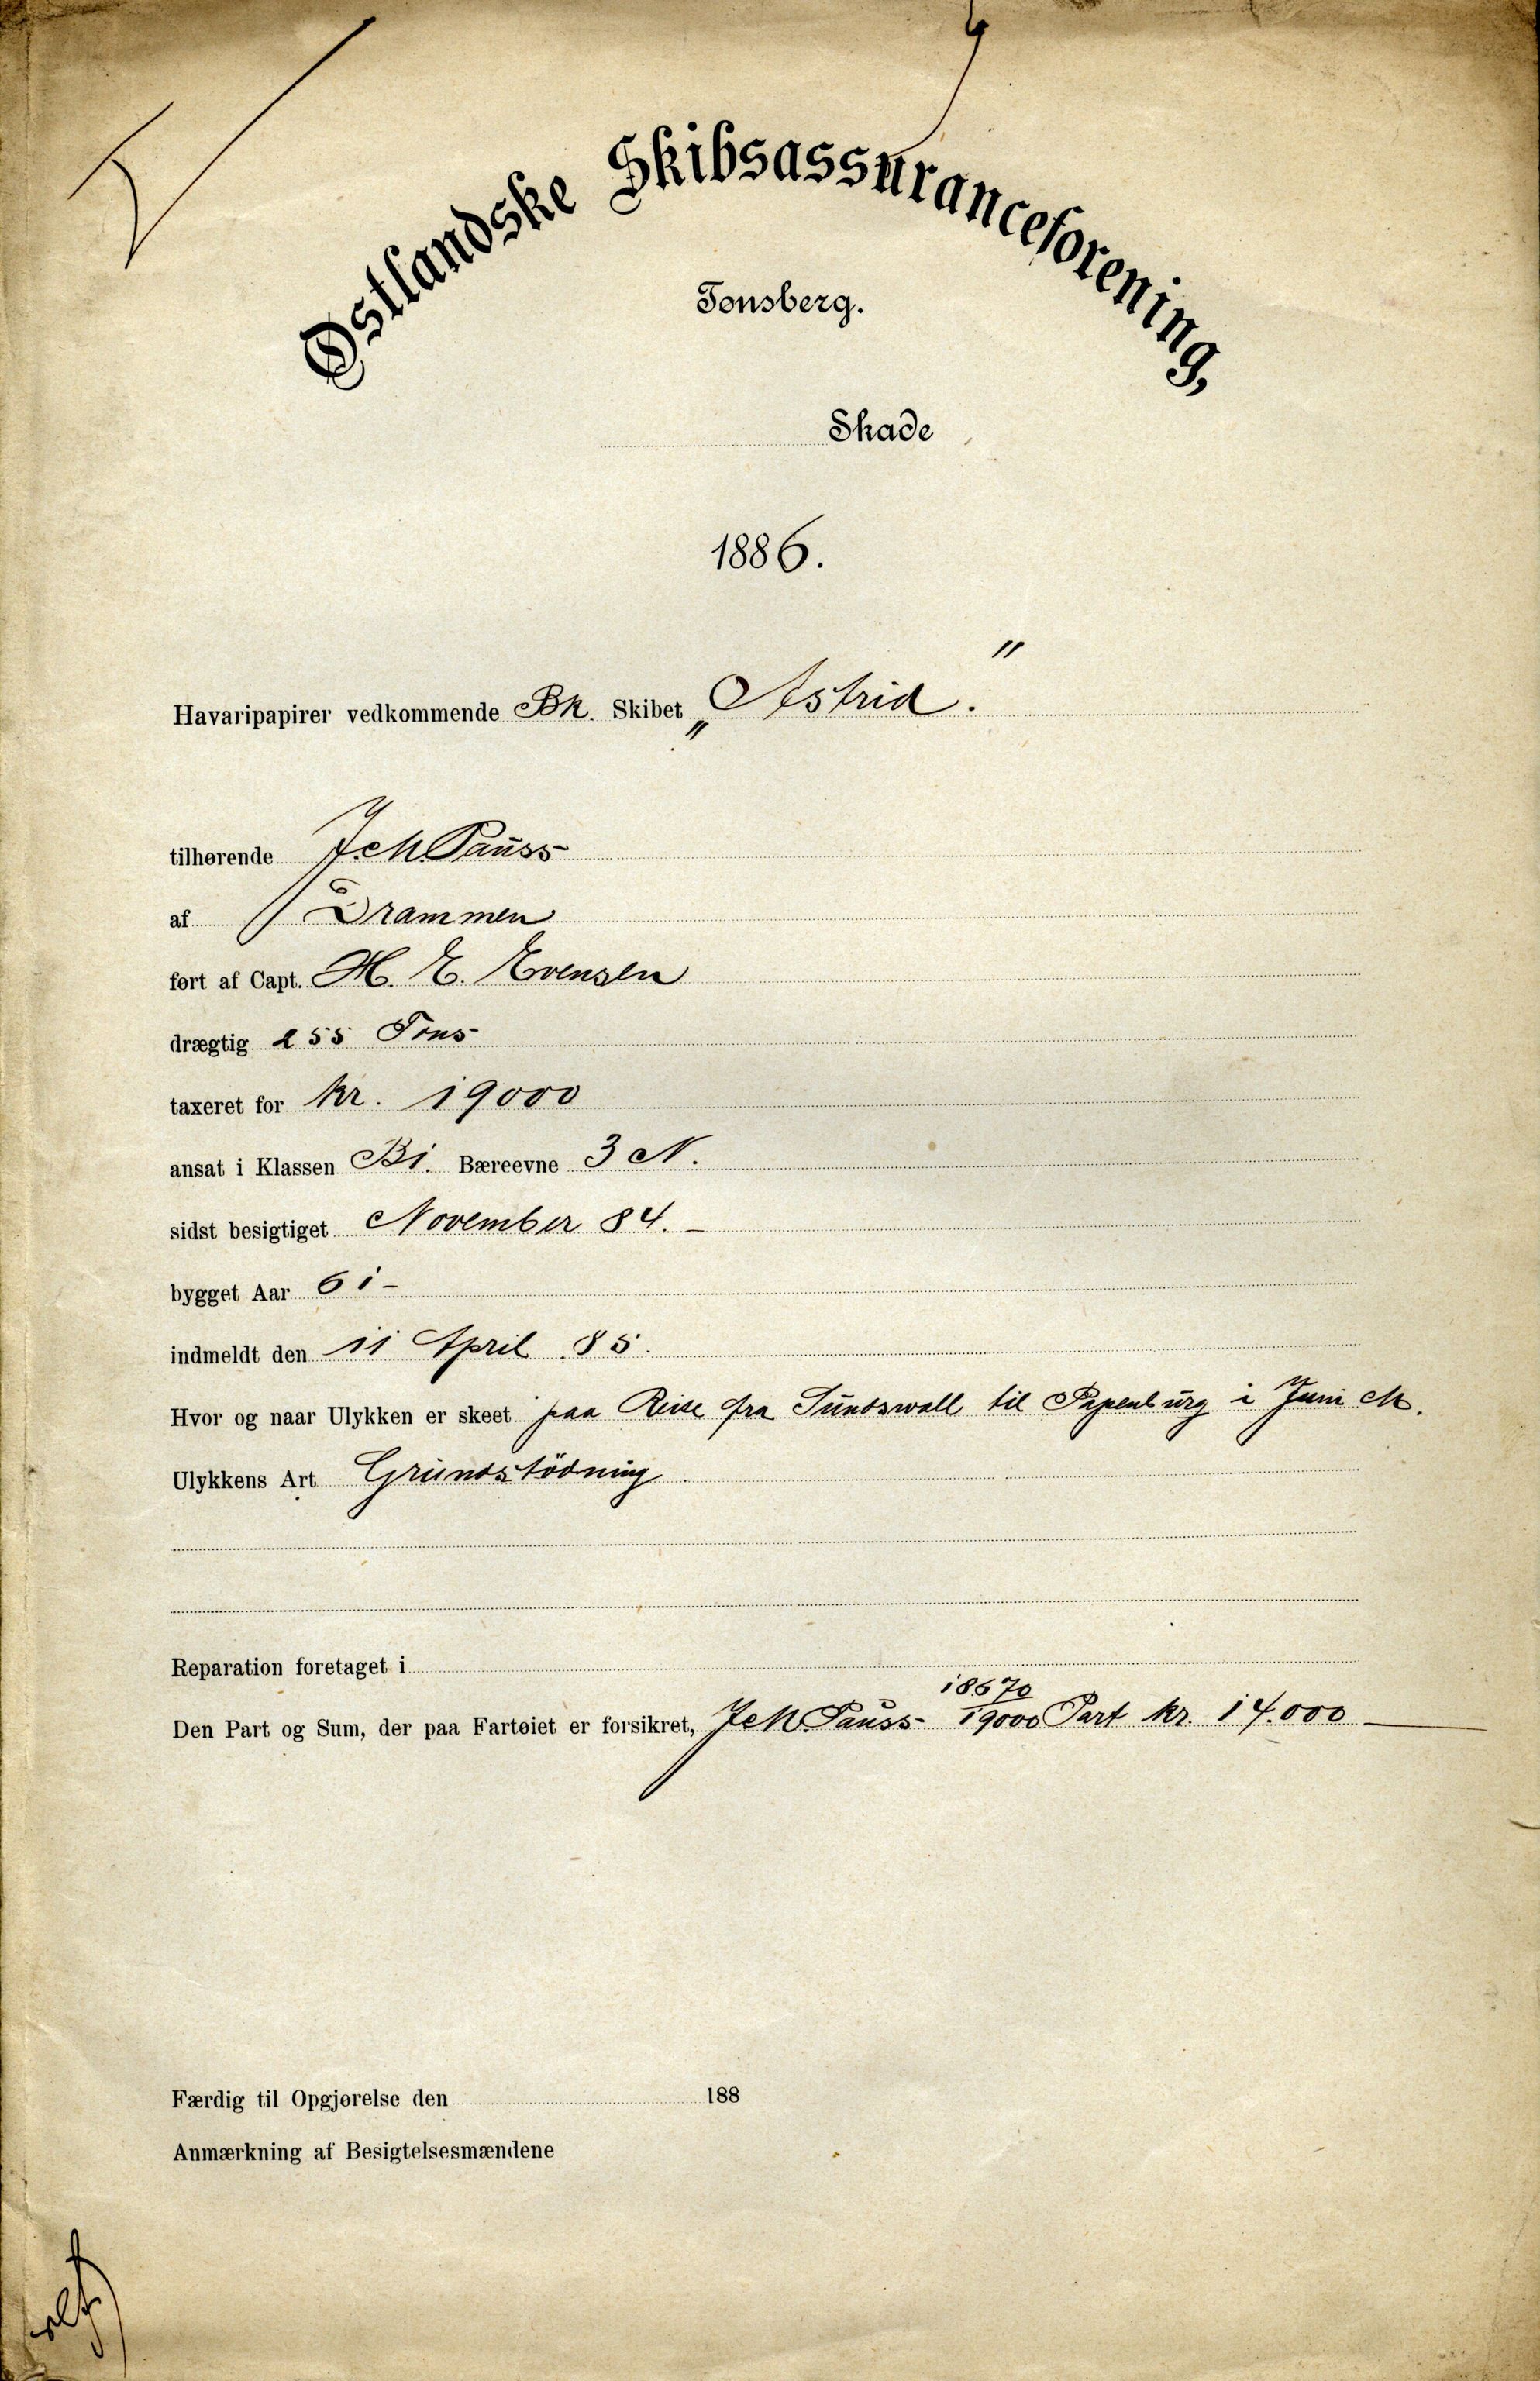 Østlandske Skibsassuranceforening,
Tønsberg.
Skade
1886.
Havaripapirer vedkommende Bk. Skibet „Astrid."
tilhørende Pauss
af Drammen
ført af Capt. H. E. Evensen
drægtig 255 Tons
taxeret for kr. 19000
ansat i Klassen B1. Bæreevne 3 N.
sidst besigtiget November 84.–
bygget Aar 61–
indmeldt den 11 April 85.
Hvor og naar Ulykken er skeet paa Reise fra Sundswall til Papenburg i Juni
Ulykkens Art Grundstödning.
Reparation foretaget i
Den Part og Sum, der paa Fartøiet er forsikret, Pauss 18670/19000 Part kr. 14.000
Færdig til Opgjørelse den 188
Anmærkning af Besigtelsesmændene